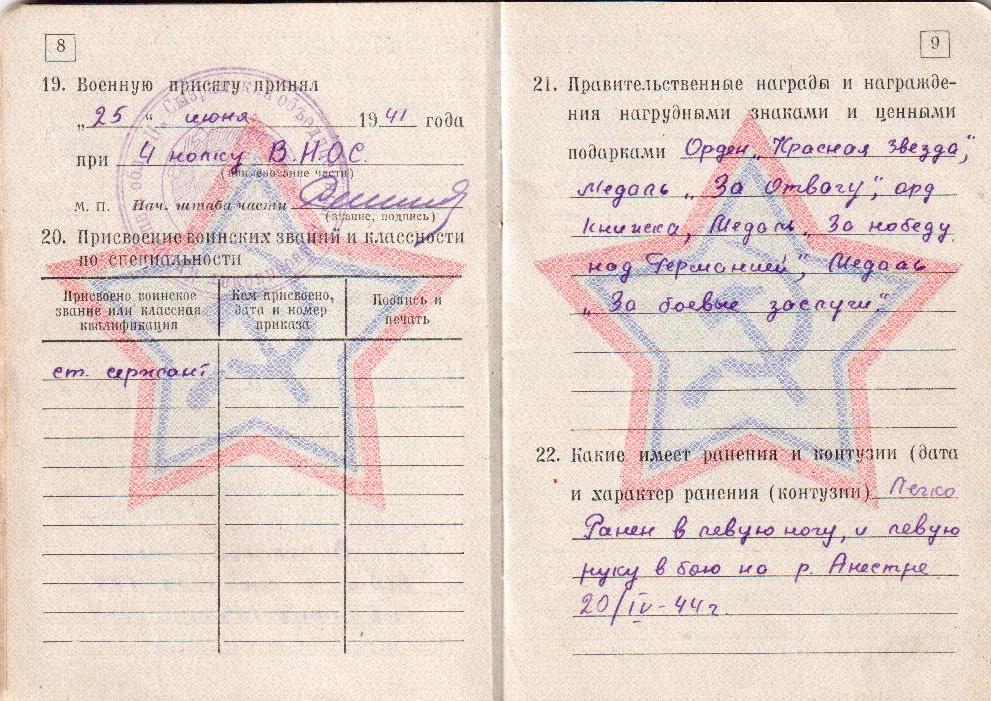 8
19. Военную присягу принял
„25“ июня 1941 года
при 4 полку В.Н.О.С.
(наименование части)
М. П. Нач. штаба части
(звание, подпись)
20. Присвоение воинских званий и классности
по специальности
Присвоено воинское
звание или классная
квалификация
Кем присвоено,
дата и номер
приказа
Подпись и
печать
ст. сержант
9
21. Правительственные награды и награжде-
ния нагрудными знаками и ценными
подарками Орден „Красная Звезда,“
Медаль „За Отвагу“, орд
книжка, Медаль „За победу
над Германией“, Медаль
„За боевые заслуги.“
22. Какие имеет ранения и контузии (дата
и характер ранения (контузии) Легко
Ранен в левую ногу, и левую
руку в бою на р. Анестре
20/IV-44г.